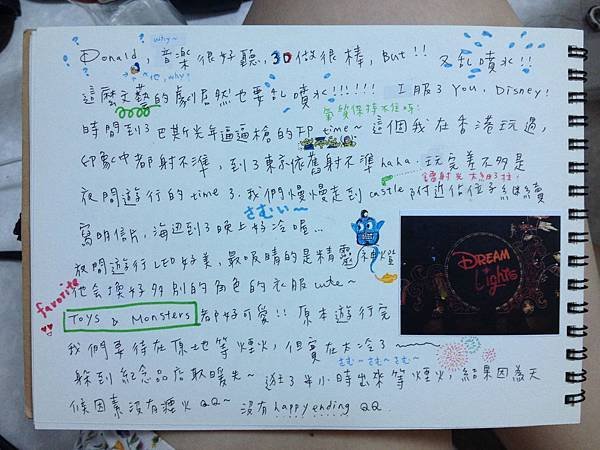 why~
Donald, 音樂很好聽, 3D做很棒, But!! 又亂噴水!!
why?
這麼文藝的劇居然也要亂噴水!!!!!! I服了You, Disney!
氣質保持不住呀
時間到了巴斯光年逼逼槍的FP time~ 這個我在香港玩過,
印象中都射不準, 到了東京依舊射不準haha. 玩完差不多是
夜間遊行的time了. 我們慢慢走到castle附近佔位子繼續
寫明信片, 海邊到了晚上好冷喔...
さむい~
夜間遊行LED好美, 最吸睛的是精靈神燈
他會換好多別的角色的衣服cute~
favorite
Toys & Monsters 都好可愛!! 原本遊行完
我們要待在原地等煙火, 但實在太冷了~
さむ~さむ~さむ~
躲到紀念品店取暖先~ 逛了半小時出來等煙火, 結果因為天
候因素沒有煙火QQ~ 沒有happy ending QQ.
DREAM
Lights